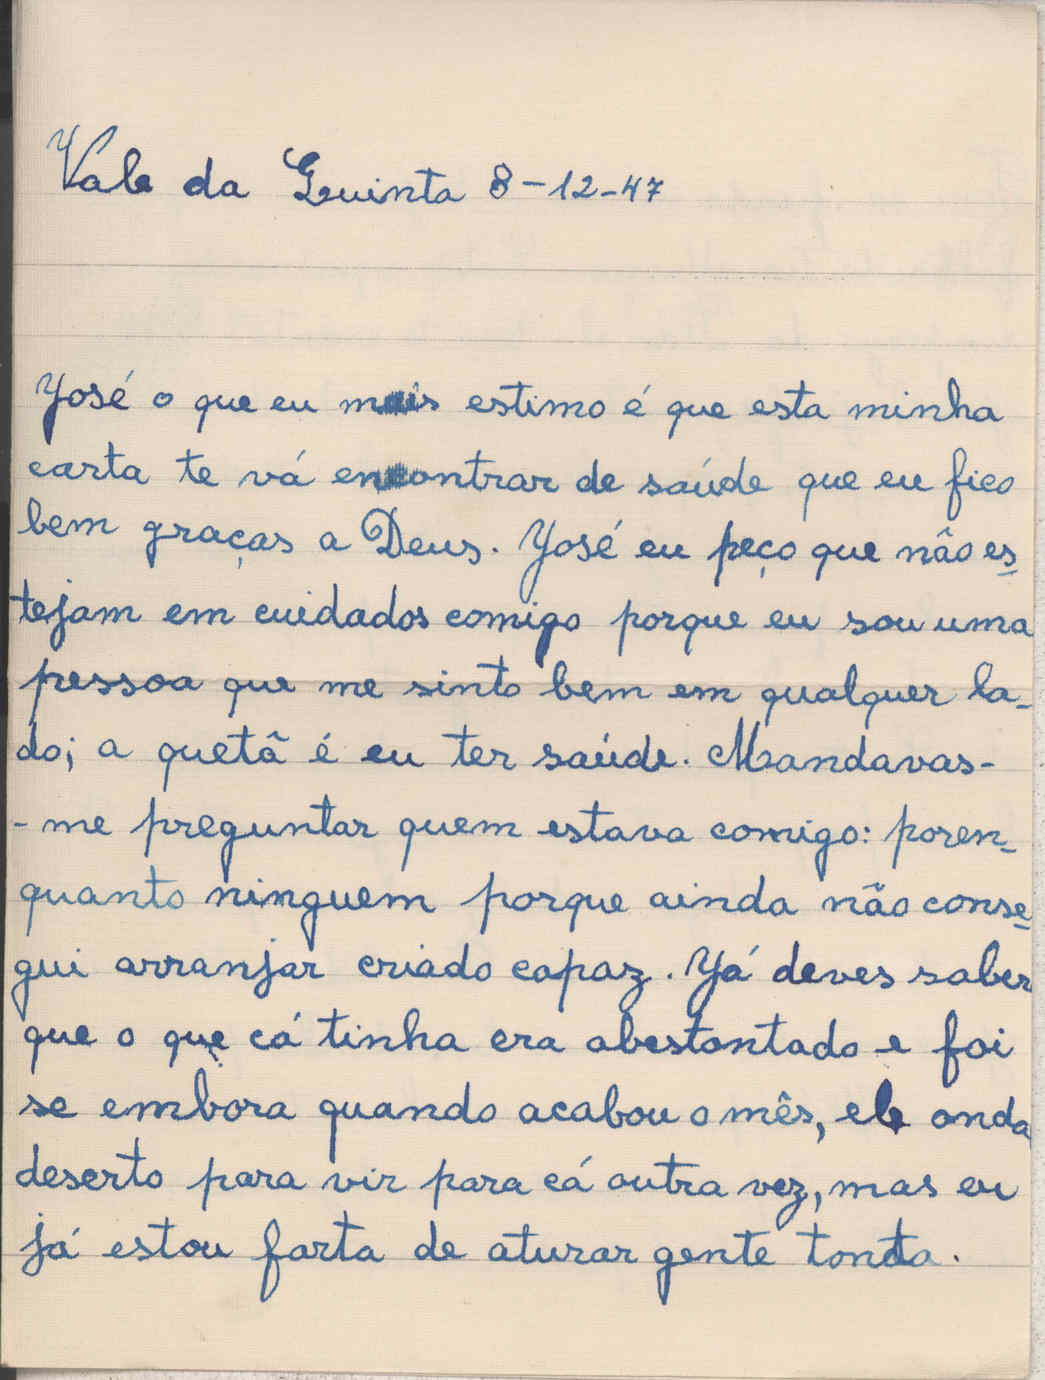 Vale da Quinta 8-12-47
José o que eu mais estimo é que esta minha
carta te vá encontrar de saúde que eu fico
bem graças a Deus. José eu peço que não es-
tejam em cuidados comigo porque eu sou uma
pessoa que me sinto bem em qualquer la-
do; a quetã é eu ter saúde. Mandavas-
-me preguntar quem estava comigo: poren-
quanto ninguem porque ainda não conse-
gui arranjar criado capaz. Já deves saber
que o que cá tinha era abestontado e foi
se embora quando acabou o mês, ele anda
deserto para vir para cá outra vez, mas eu
já estou farta de aturar gente tonta.